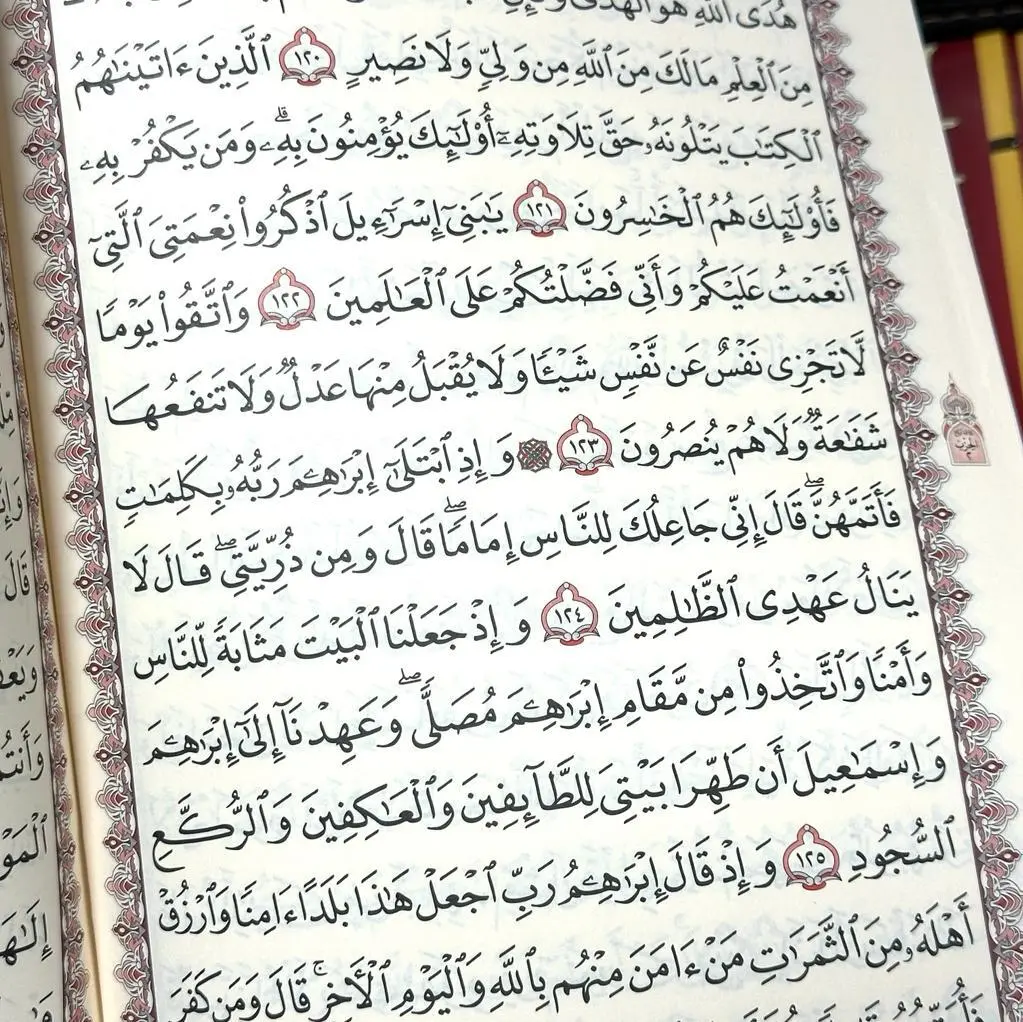 هُدَى ٱللَّهِ هُوَ ٱلْهُدَىٰ وَلَئِنِ
مِنَ ٱلْعِلْمِ مَا لَكَ مِنَ ٱللَّهِ مِن وَلِىٍّ وَلَا نَصِيرٍ ١٢٠ ٱلَّذِينَ ءَاتَيْنَٰهُمُ
ٱلْكِتَٰبَ يَتْلُونَهُۥ حَقَّ تِلَاوَتِهِۦٓ أُو۟لَٰٓئِكَ يُؤْمِنُونَ بِهِۦۗ وَمَن يَكْفُرْ بِهِۦ
فَأُو۟لَٰٓئِكَ هُمُ ٱلْخَٰسِرُونَ ١٢١ يَٰبَنِىٓ إِسْرَٰٓءِيلَ ٱذْكُرُوا۟ نِعْمَتِىَ ٱلَّتِىٓ
أَنْعَمْتُ عَلَيْكُمْ وَأَنِّى فَضَّلْتُكُمْ عَلَى ٱلْعَٰلَمِينَ ١٢٢ وَٱتَّقُوا۟ يَوْمًا
لَّا تَجْزِى نَفْسٌ عَن نَّفْسٍ شَيْـًٔا وَلَا يُقْبَلُ مِنْهَا عَدْلٌ وَلَا تَنفَعُهَا
شَفَٰعَةٌ وَلَا هُمْ يُنصَرُونَ ١٢٣ وَإِذِ ٱبْتَلَىٰٓ إِبْرَٰهِـۧمَ رَبُّهُۥ بِكَلِمَٰتٍ
فَأَتَمَّهُنَّۖ قَالَ إِنِّى جَاعِلُكَ لِلنَّاسِ إِمَامًاۖ قَالَ وَمِن ذُرِّيَّتِىۖ قَالَ لَا
يَنَالُ عَهْدِى ٱلظَّٰلِمِينَ ١٢٤ وَإِذْ جَعَلْنَا ٱلْبَيْتَ مَثَابَةً لِّلنَّاسِ
وَأَمْنًا وَٱتَّخِذُوا۟ مِن مَّقَامِ إِبْرَٰهِـۧمَ مُصَلًّىۖ وَعَهِدْنَآ إِلَىٰٓ إِبْرَٰهِـۧمَ
وَإِسْمَٰعِيلَ أَن طَهِّرَا بَيْتِىَ لِلطَّآئِفِينَ وَٱلْعَٰكِفِينَ وَٱلرُّكَّعِ
ٱلسُّجُودِ ١٢٥ وَإِذْ قَالَ إِبْرَٰهِـۧمُ رَبِّ ٱجْعَلْ هَٰذَا بَلَدًا ءَامِنًا وَٱرْزُقْ
أَهْلَهُۥ مِنَ ٱلثَّمَرَٰتِ مَنْ ءَامَنَ مِنْهُم بِٱللَّهِ وَٱلْيَوْمِ ٱلْءَاخِرِۚ قَالَ وَمَن كَفَرَ